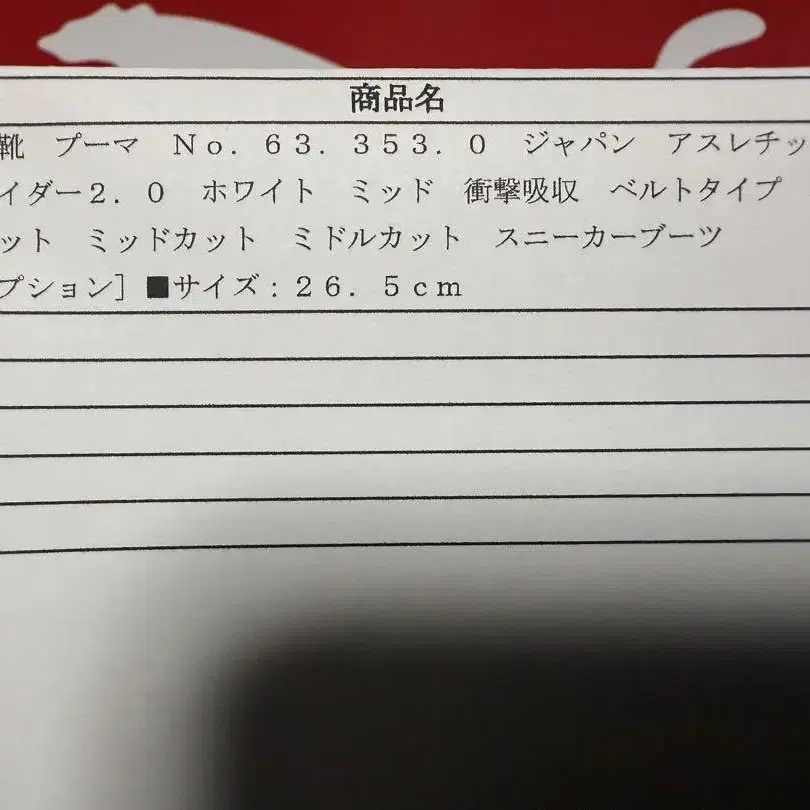 商品名
靴　プーマ　Ｎｏ．６３．３５３．０　ジャパン　アスレチッ
イダー２．０　ホワイト　ミッド　衝撃吸収　ベルトタイプ
ット　ミッドカット　ミドルカット　スニーカーブーツ
プション］■サイズ：２６．５ｃｍ